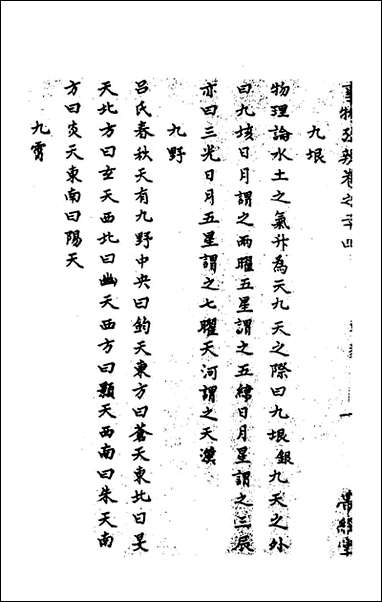 事物考辨卷之三十四
九垠
物理論水土之氣升為天九天之際曰九垠銀九天之外
曰九垓日月謂之兩曜五星謂之五緯日月星謂之三辰
亦曰三光日月五星謂之七曜天河謂之天漢
九野
呂氏春秋天有九野中央曰鈞天東方曰蒼天東北曰旻
天北方曰玄天西北曰幽天西方曰顥天西南曰朱天南
方曰炎天東南曰陽天
九霄